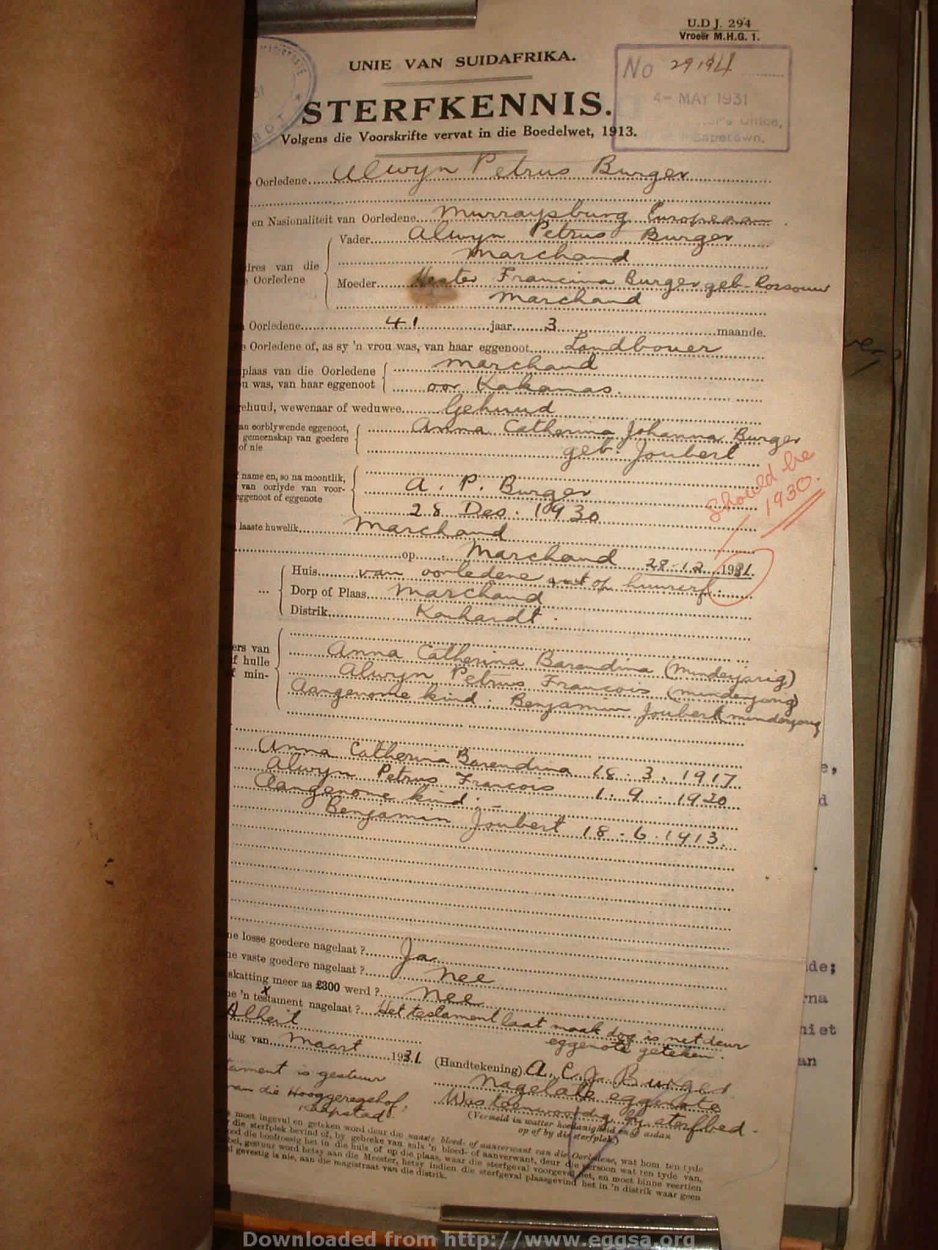 U.D J. 294
Vroeër M.H.G. 1.
UNIE VAN SUIDAFRIKA.
No 29194
4 - MAY 1931
Office,
Capetown.
STERFKENNIS.
Volgens die Voorskrifte vervat in die Boedelwet, 1913.
Oorledene Alwyn Petrus Burger
en Nasionaliteit van Oorledene Murraysburg European
Vader Alwyn Petrus Burger
Marchand
dres van die
Oorledene
Moeder Hester Francina Burger geb. Rossouw
Marchand
Oorledene 41 jaar 3 maande.
Oorledene of, as sy 'n vrou was, van haar eggenoot Landbouer
plaas van die Oorledene Marchand
u was, van haar eggenoot oor Kakamas
ehuud, wewenaar of weduwee Gehuud
an oorblywende eggenoot, Anna Catherina Johanna Burger
gemeenskap van goedere
of nie
geb. Joubert
name en, so na moontlik,
van oorlyde van voor-
eggenoot of eggenote
A. P. Burger
28 Des. 1930
Should be
1930.
laaste huwelik Marchand
op Marchand 28-12 1931.
Huis van oorledene op huurerf.
Dorp of Plaas Marchand
Distrik Kenhardt.
ers van
f hulle
min-
Anna Catherina Barendina (minderjarig)
Alwyn Petrus Francois (minderjarig)
Aangenome kind: Benjamin Joubert minderjarig
Anna Catherina Barendina 18. 3. 1917
Alwyn Petrus Francois 1. 9. 1920
Aangenome kind:-
Benjamin Joubert 18-6-1913.
ne losse goedere nagelaat? Ja
ne vaste goedere nagelaat? Nee
skatting meer as £300 werd? Nee
ne 'n testament nagelaat? Het testament laat maak dog is net deur
eggenote geteken.
dag van Maart 1931
(Handtekening) A. C. J. Burger
Nagelate eggenote
Was teenwoordig by sterfbed.
(Vermeld in watter hoedanigheid en of sodan
op of by die sterfplek)
ament is gestuur
van die Hooggeregshof,
Kaapstad
moet ingevul en geteken word deur die naaste bloed- of aanverwant van die Oorledene, wat hom ten tyde
die sterfplek bevind of, by gebreke van suls 'n bloed- of aanverwant, deur die persoon wat ten tyde van,
die in het huis of op die plaas, waar die sterfgeval voorgeval het, en moet binne veertien
gestuur word hetsy aan die Meester, hetsy indien die sterfgeval plaasgevind het in 'n distrik waar geen
gevestig is nie, aan die magistraat van die distrik.
Downloaded from http://www.eggsa.org